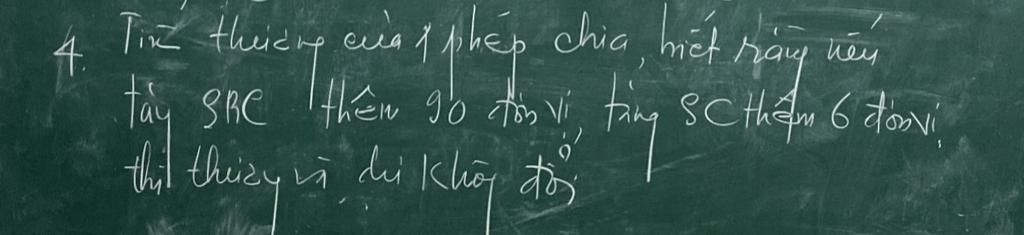 4. Tìm thương của 1 phép chia, biết rằng nếu
tăng SBC thêm 90 đơn vị, tăng SC thêm 6 đơn vị
thì thương và dư không đổi